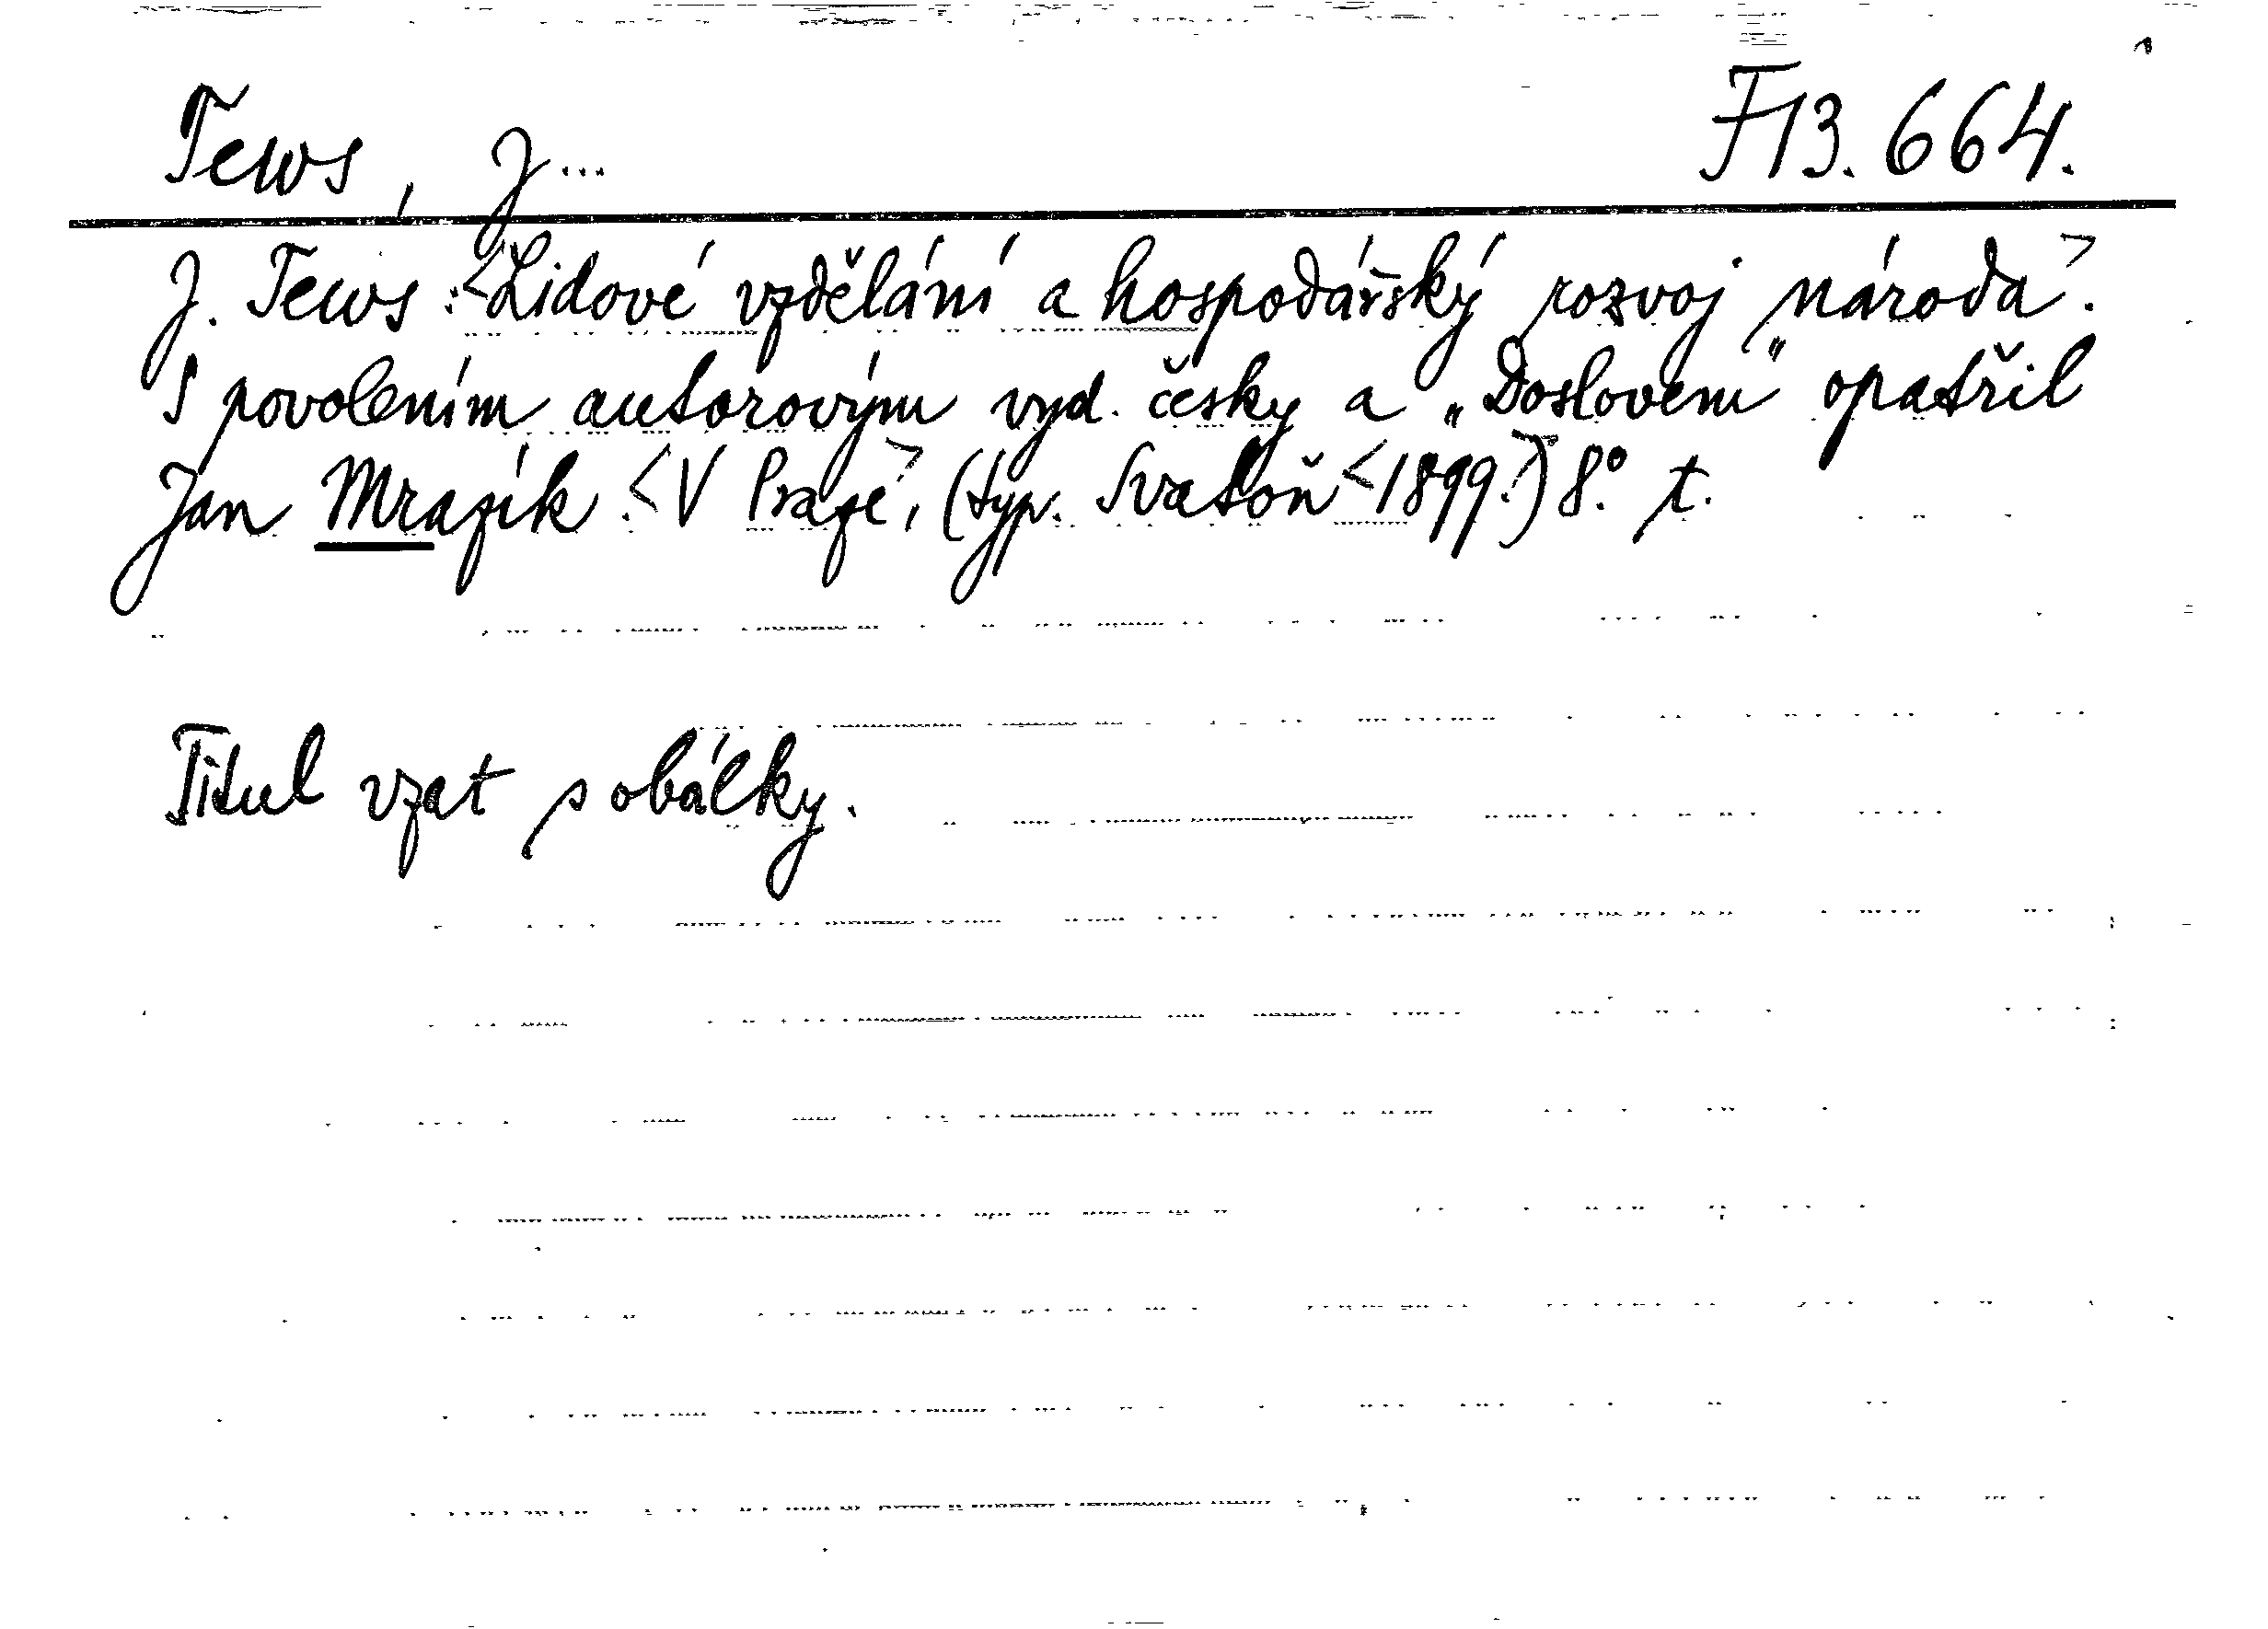 Tews, J... F 13.664.
J. Tews: <Lidové vzdělání a hospodářský rozvoj národa>.
S povolením autorovým vyd. česky a „Doslovem" opatřil
Jan Mrazík. <V Praze>, (typ. Svatoň <1899.>) 8.° t.
Titul vzat s obálky.